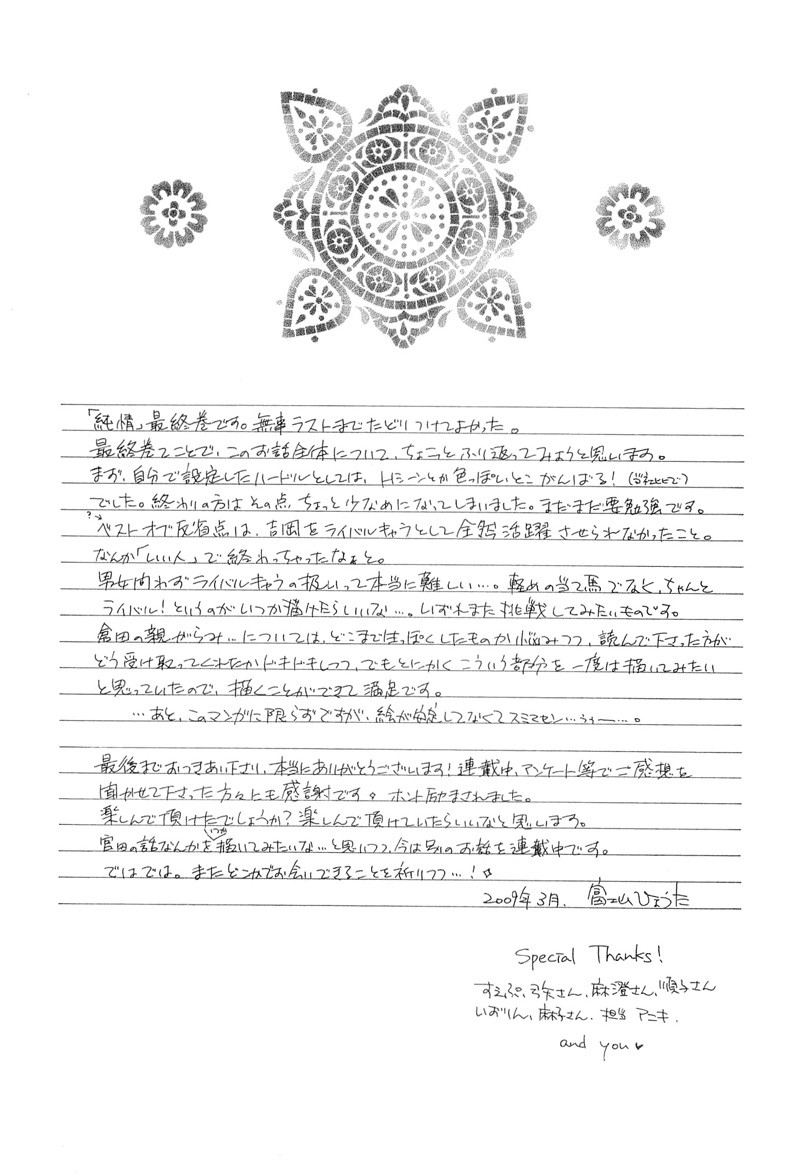 「純情」最終巻です。無事ラストまでたどりつけてよかった。
最終巻てことで、このお話全体について、ちょこっとふり返ってみようと思います。
まず、自分で設定したハードルとしては、Hシーンとか色っぽいとこがんばる!
でした。終わりの方はその点、ちょっと少なめになってしまいました。まだまだ要勉強です。
ベストオブ反省点は、吉岡をライバルキャラとして全然活躍させられなかったこと。
なんか「いい人」で終わっちゃったなぁと。
男女問わずライバルキャラの扱いって本当に難しい…。軽めの当て馬でなく、ちゃんと
ライバル!というのがいつか描けたらいいな…。いずれまた挑戦してみたいものです。
倉田の親がらみ…については、どこまではっぽくしたものか悩みつつ、読んで下さった方が
どう受け取ってくれたかドキドキしつつ、でもとにかくこういう部分を一度は描いてみたい
と思っていたので、描くことができて満足です。
…あと、このマンガに限らずですが、絵が安定してなくてスミマセン…うぅー…。
最後までおつきあい下さり、本当にありがとうございます!連載中、アンケート等でご感想を
聞かせて下さった方々にも感謝です。ホント励まされました。
楽しんで頂けたでしょうか?楽しんで頂けていたらいいなと思います。
宮田の話なんかをいつか描いてみたいな…と思いつつ、今は別のお話を連載中です。
ではでは。またどこかでお会いできることを祈りつつ…!☆
2009年3月. 富士山ひょうた
Special Thanks!
すえぷ、弓矢さん、麻澄さん、順子さん
いおりん、麻子さん、担当アニキ.
and you♥